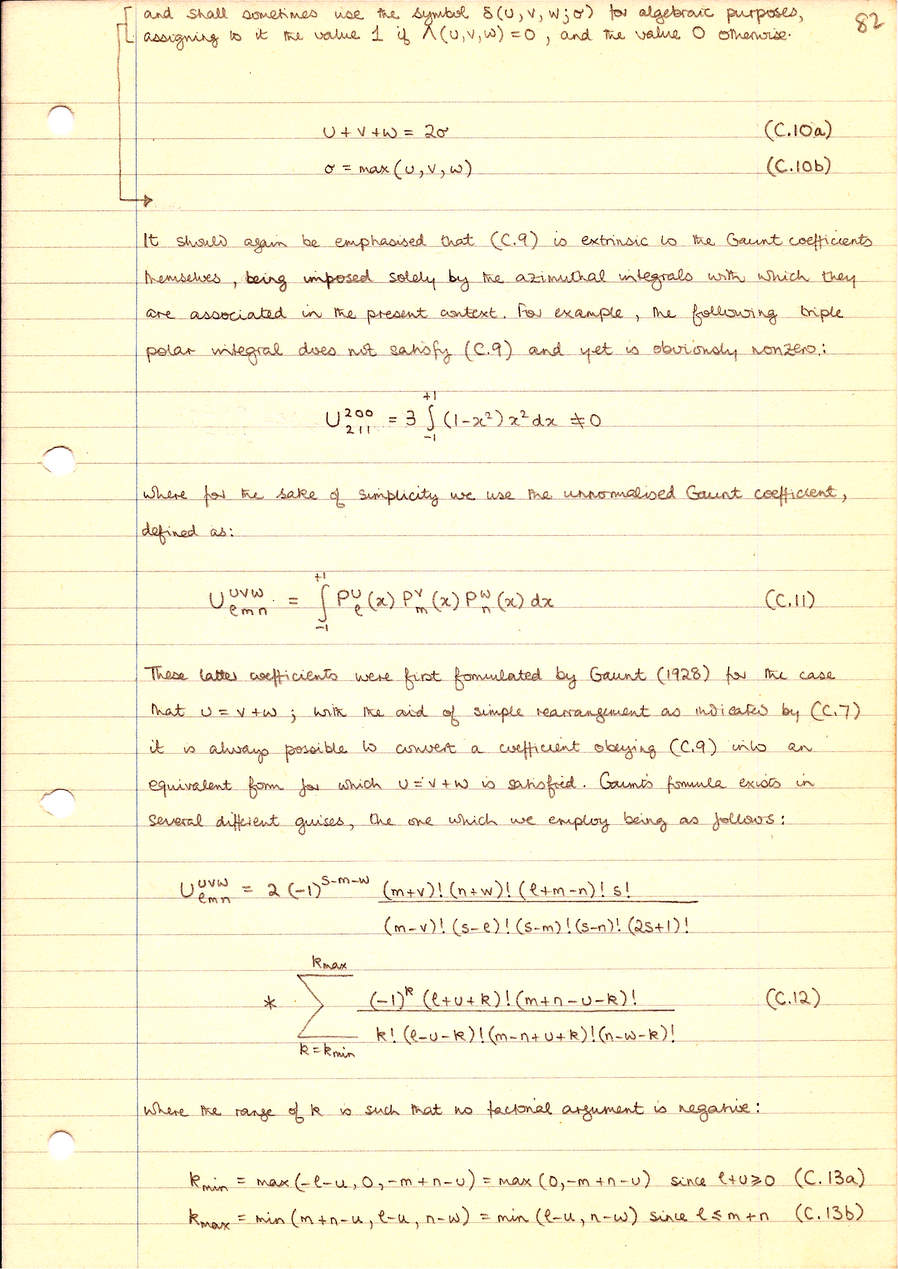 and shall sometimes use the symbol δ(u,v,w;σ) for algebraic purposes,
82
assigning to it the value 1 if Λ(u,v,w) = 0, and the value 0 otherwise.
u + v + w = 2σ (C.10a)
σ = max(u,v,w) (C.10b)
It should again be emphasised that (C.9) is extrinsic to the Gaunt coefficients
themselves, being imposed solely by the azimuthal integrals with which they
are associated in the present context. For example, the following triple
polar integral does not satisfy (C.9) and yet is obviously nonzero:
U^{200}_{211} = 3 ∫_{-1}^{+1} (1-x²) x² dx ≠ 0
where for the sake of simplicity we use the unnormalised Gaunt coefficient,
defined as:
U^{uvw}_{ℓmn} = ∫_{-1}^{+1} P^u_ℓ(x) P^v_m(x) P^w_n(x) dx (C.11)
These latter coefficients were first formulated by Gaunt (1928) for the case
that u = v + w ; with the aid of simple rearrangement as indicated by (C.7)
it is always possible to convert a coefficient obeying (C.9) into an
equivalent form for which u = v + w is satisfied. Gaunt's formula exists in
several different guises, the one which we employ being as follows:
U^{uvw}_{ℓmn} = 2 (-1)^{s-m-w} (m+v)! (n+w)! (ℓ+m-n)! s!
(m-v)! (s-ℓ)! (s-m)! (s-n)! (2s+1)!
k_max
* ∑ (-1)^k (ℓ+u+k)! (m+n-u-k)! (C.12)
k! (ℓ-u-k)! (m-n+u+k)! (n-w-k)!
k = k_min
where the range of k is such that no factorial argument is negative:
k_min = max(-ℓ-u, 0, -m+n-u) = max(0, -m+n-u) since ℓ+u ≥ 0 (C.13a)
k_max = min(m+n-u, ℓ-u, n-w) = min(ℓ-u, n-w) since ℓ ≤ m+n (C.13b)